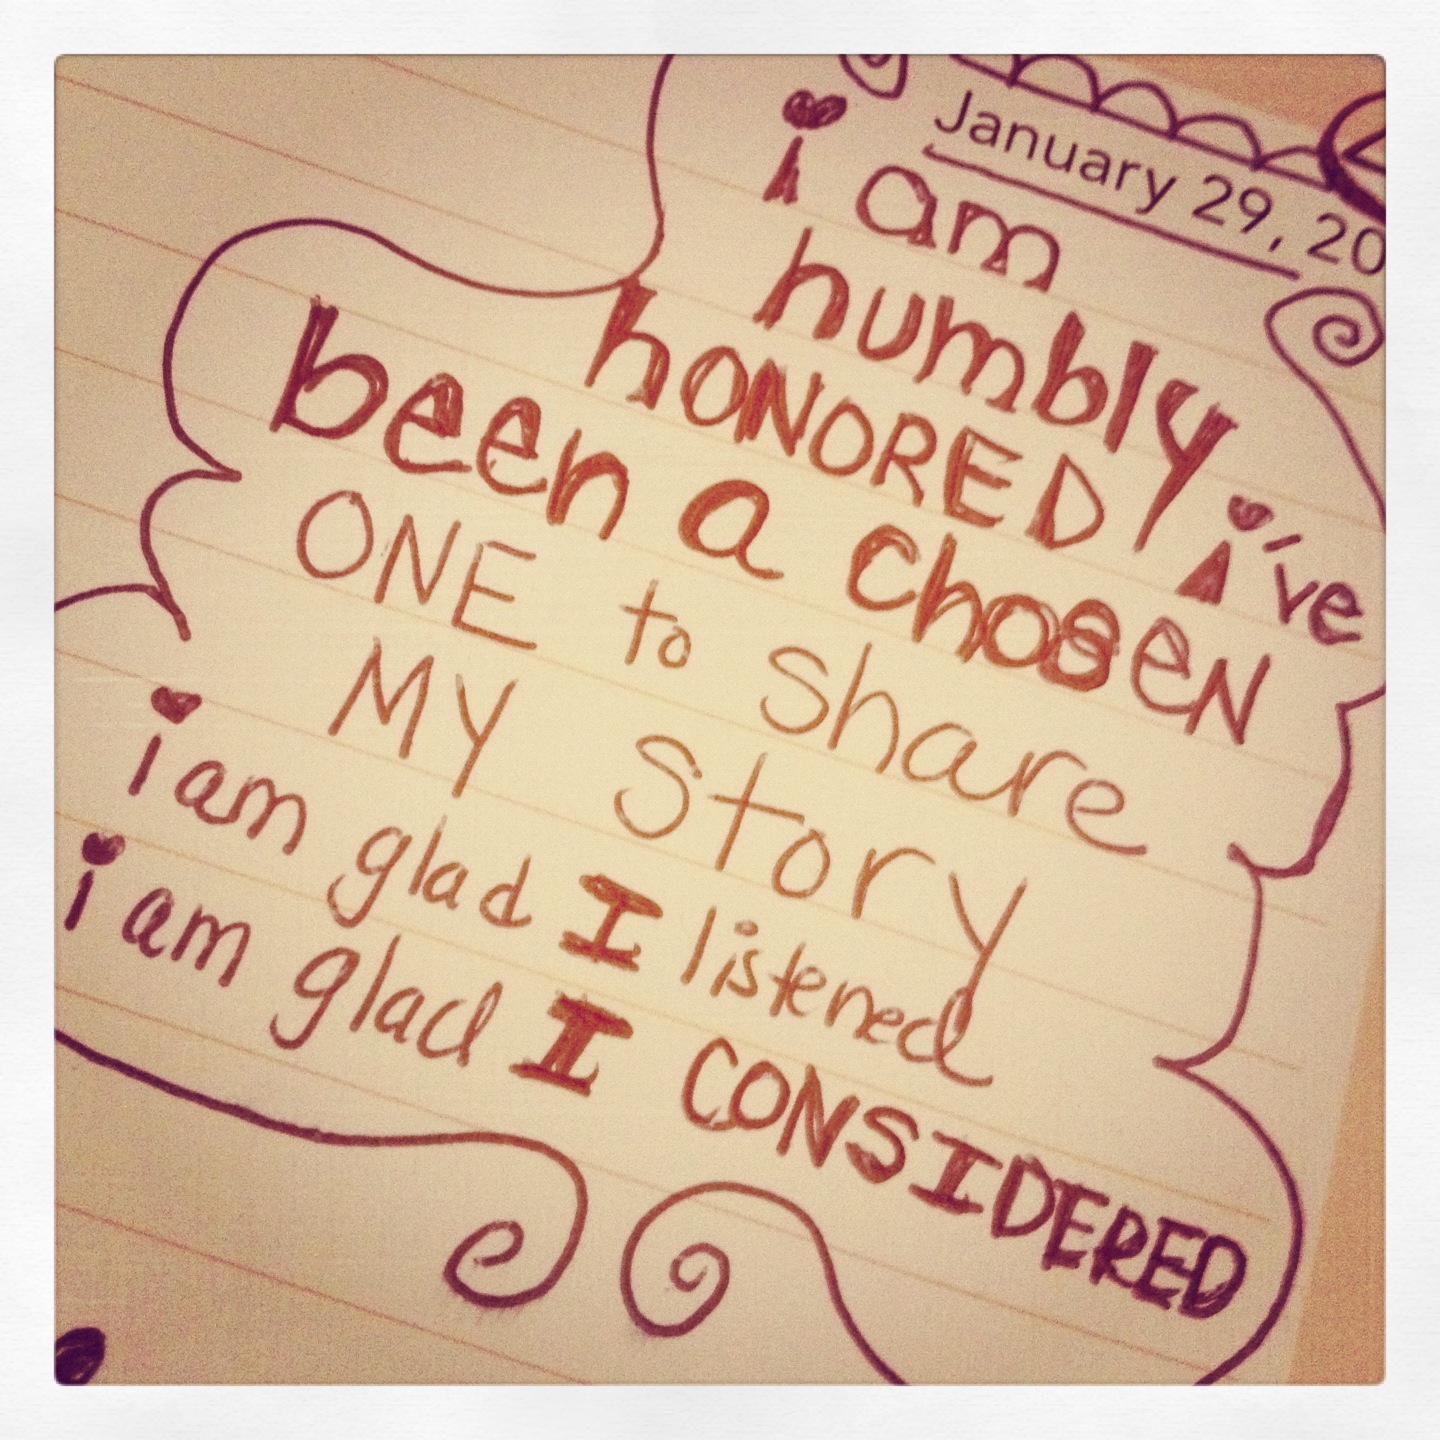 January 29, 20
i am
humbly
hONORED i've
been a chosEN
ONE to share
MY Story
i am glad I listened
i am glad I CONSIDERED